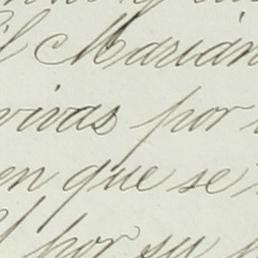 il Marian
vivas por
en que se
por su